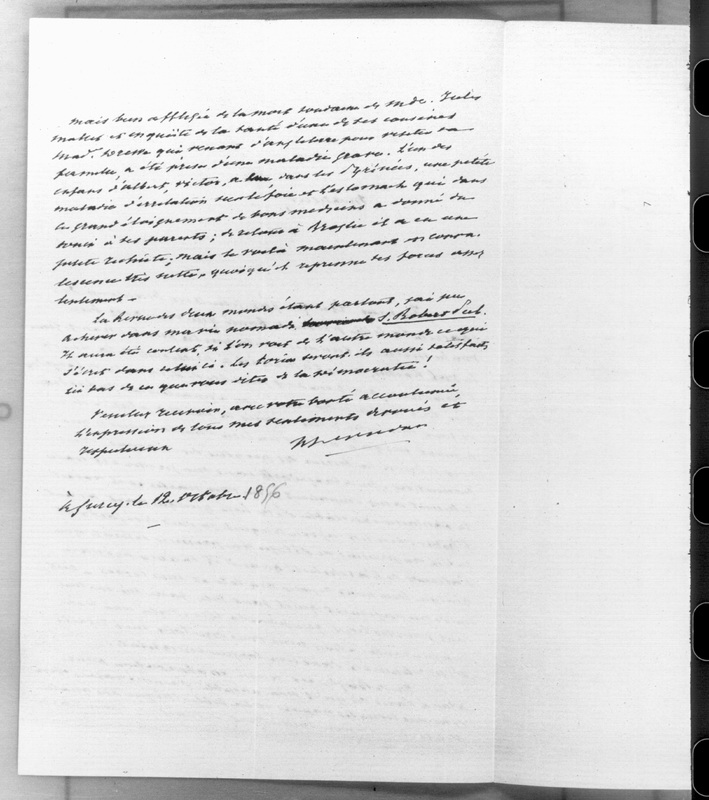 mais bien affligée de la mort soudaine de Mde. Jules
Mallet et enquiète de la santé d'une de ses cousines
Mad. qui venant d'angleterre pour visiter sa
famille, a été prise d'une maladie grave. L'un des
enfans d'albert, victor, a eu dans les Pyrénées, une petite
maladie d'irritation sur le foie et l'estomach qui dans
ce grand éloignement de bons medecins a donné du
souci à ses parents; de retour à Broglie il a eu une
petite rechute; mais le voilà maintenant en conva-
lescence très nette, quoiqu'il reprenne ses forces assez
lentement.
La Revue des deux mondes étant partout, j'ai pu
achever dans ma vie nomade S. Robert Peel.
Il aura été content, si l'on voit de l'autre monde ce qui
s'écrit dans celui ci. Les toris seront ils aussi satisfaits
ici bas de ce que vous dites de la démocratie!
Veuillez recevoir, avec votre bonté accoutumée
l'expression de tous mes sentiments dévoués et
respectueux
à Gurcy. le 12 Octobre 1856